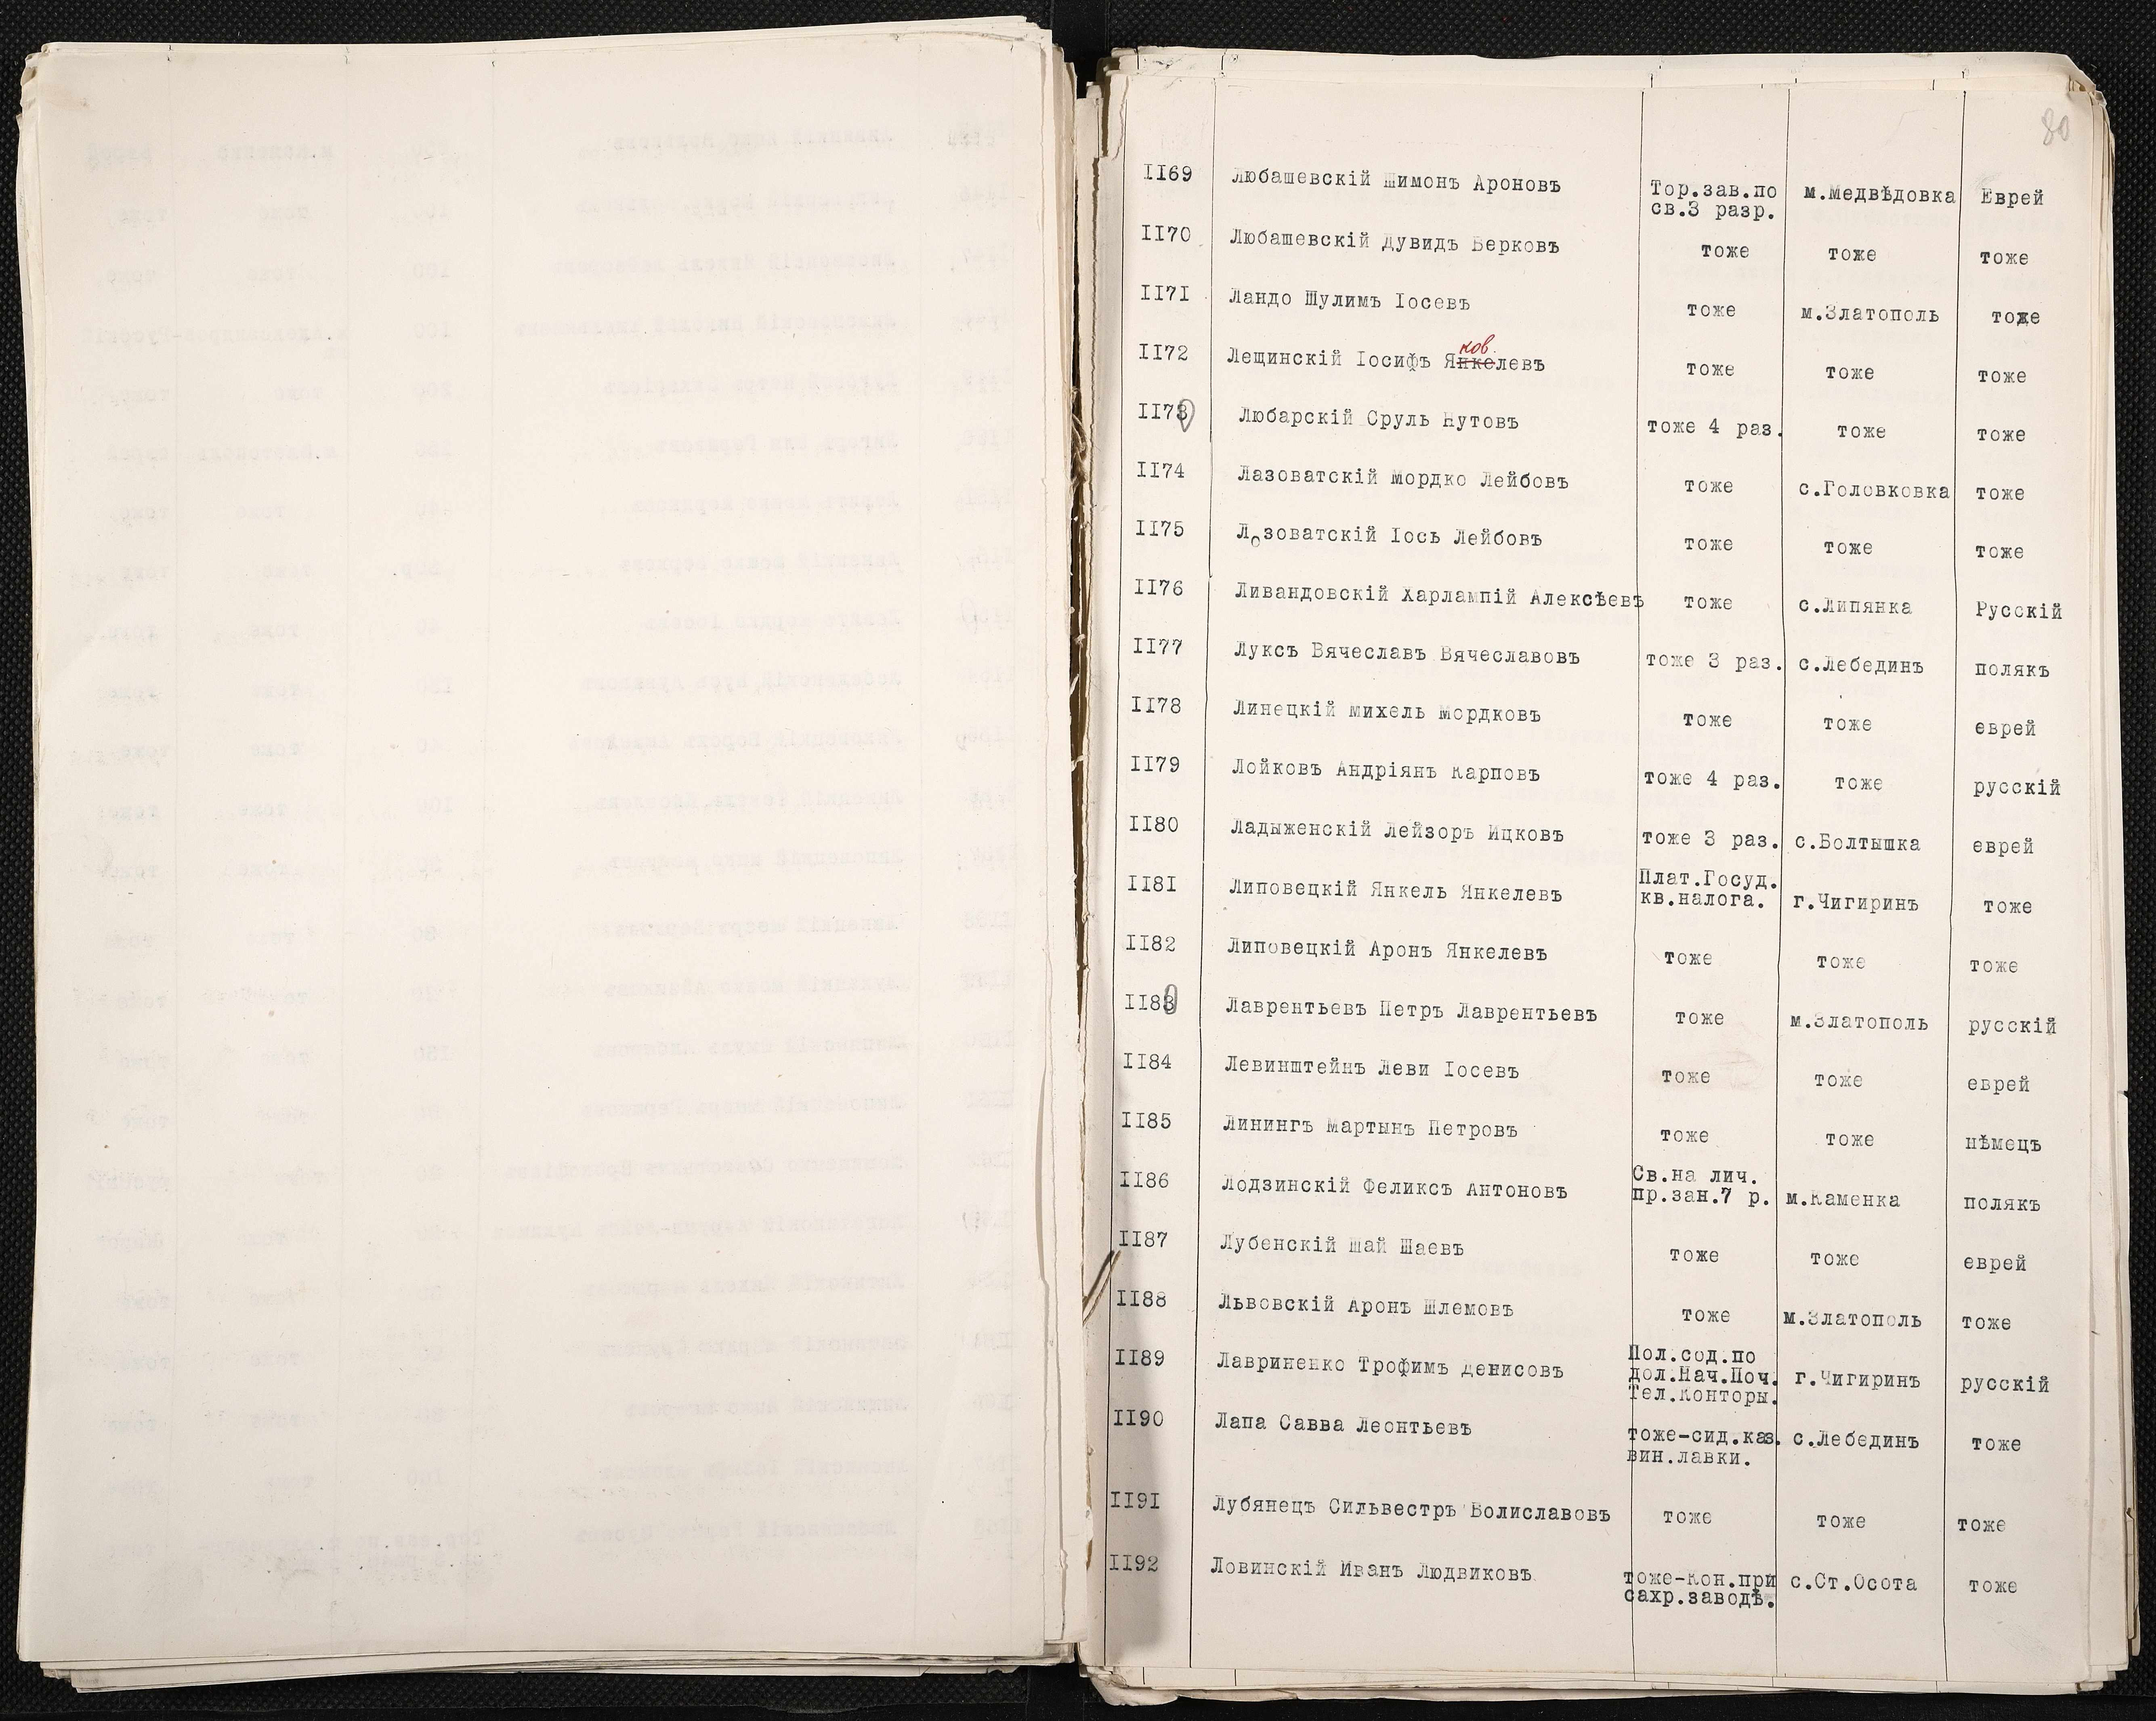 80
1169 Любашевскій Шимонъ Ароновъ Тор.зав.по м.Медвѣдовка Еврей
св.3 разр.
1170 Любашевскій Дувидъ Берковъ тоже тоже тоже
1171 Ландо Шулимъ Іосевъ тоже м.Златополь тоже
ков.
1172 Лещинскій Іосифъ Янкелевъ тоже тоже тоже
1173 Любарскій Сруль Нутовъ тоже 4 раз. тоже тоже
1174 Лазоватскій Мордко Лейбовъ тоже с.Головковка тоже
1175 Лозоватскій Іось Лейбовъ тоже тоже тоже
1176 Ливандовскій Харлампій Алексѣевъ тоже с.Липянка Русскій
1177 Луксъ Вячеславъ Вячеславовъ тоже 3 раз. с.Лебединъ полякъ
1178 Линецкій Михель Мордковъ тоже тоже еврей
1179 Лойковъ Андріянъ Карповъ тоже 4 раз. тоже русскій
1180 Ладыженскій Лейзоръ Ицковъ тоже 3 раз. с.Болтышка еврей
1181 Липовецкій Янкель Янкелевъ Плат.Госуд. г.Чигиринъ тоже
кв.налога.
1182 Липовецкій Аронъ Янкелевъ тоже тоже тоже
1183 Лаврентьевъ Петръ Лаврентьевъ тоже м.Златополь русскій
1184 Левинштейнъ Леви Іосевъ тоже тоже еврей
1185 Линингъ Мартынъ Петровъ тоже тоже нѣмецъ
1186 Лодзинскій Феликсъ Антоновъ Св.на лич. м.Каменка полякъ
пр.зан.7 р.
1187 Лубенскій Шай Шаевъ тоже тоже еврей
1188 Львовскій Аронъ Шлемовъ тоже м.Златополь тоже
1189 Лавриненко Трофимъ Денисовъ Пол.сод.по г.Чигиринъ русскій
дол.Нач.Поч.
Тел.Конторы.
1190 Лапа Савва Леонтьевъ тоже-сид.каз. с.Лебединъ тоже
вин.лавки.
1191 Лубянецъ Сильвестръ Болиславовъ тоже тоже тоже
1192 Ловинскій Иванъ Людвиковъ тоже-Кон.при с.Ст.Осота тоже
сахр.заводѣ.